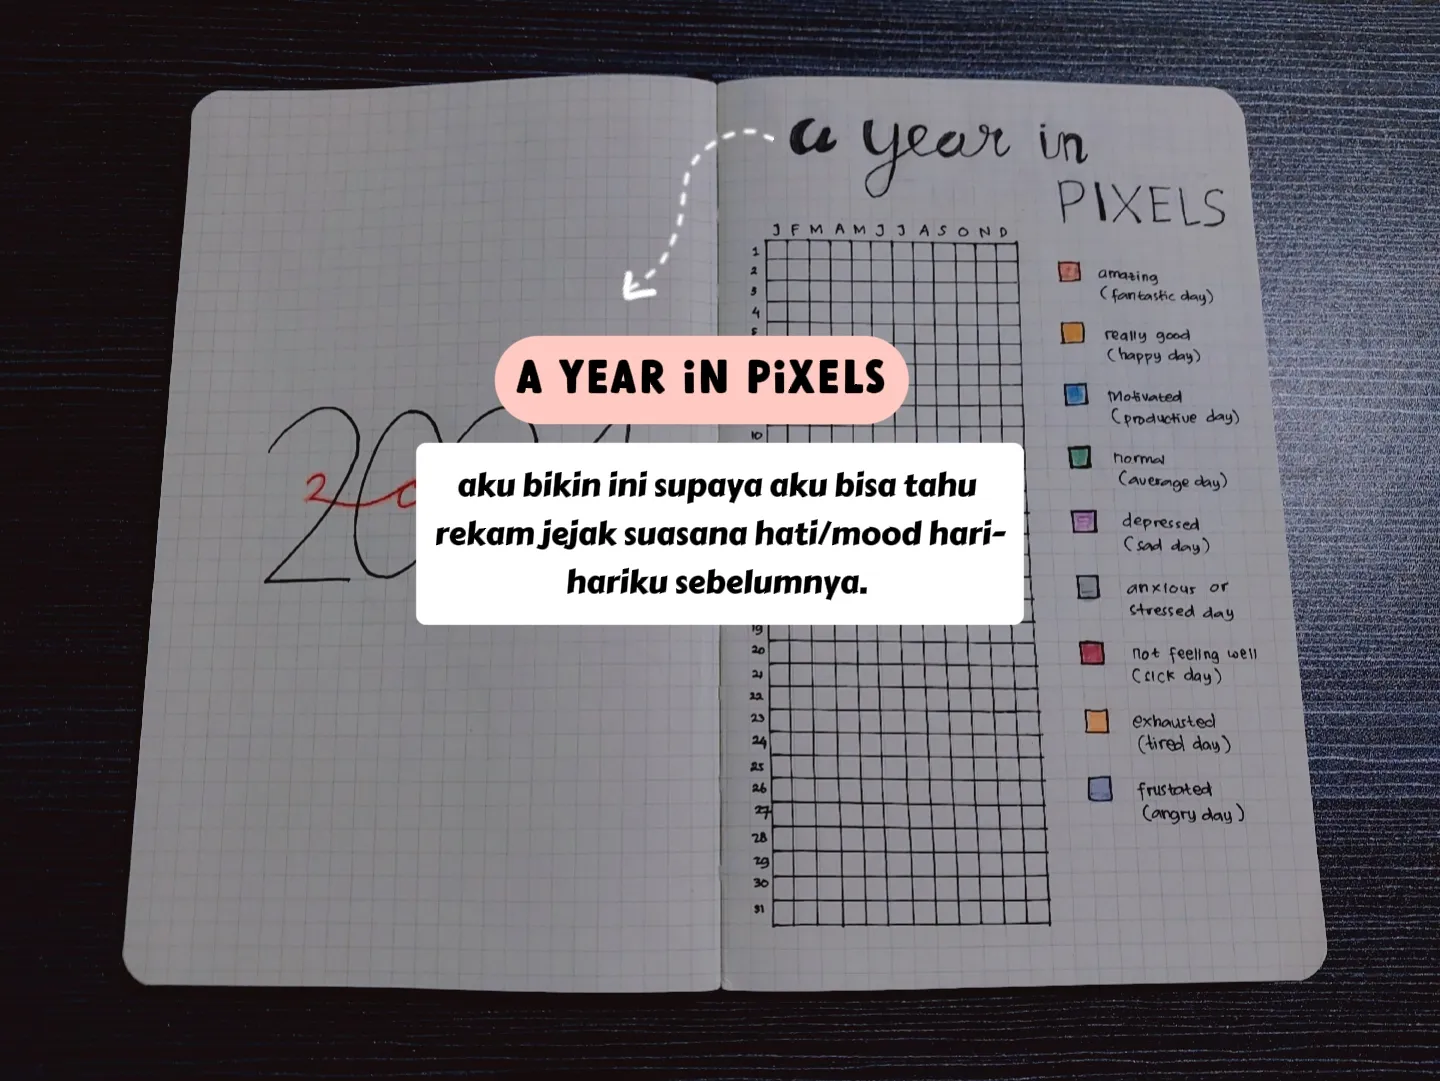 a year in
PIXELS
J F M A M J J A S O N D
1
2
3
4
A YEAR iN PiXELS
10
aku bikin ini supaya aku bisa tahu
rekam jejak suasana hati/mood hari-
hariku sebelumnya.
19
20
21
22
23
24
25
26
27
28
29
30
31
amazing
(fantastic day)
really good
(happy day)
Motivated
(productive day)
normal
(average day)
depressed
(sad day)
anxious or
stressed day
not feeling well
(sick day)
exhausted
(tired day)
frustated
(angry day)